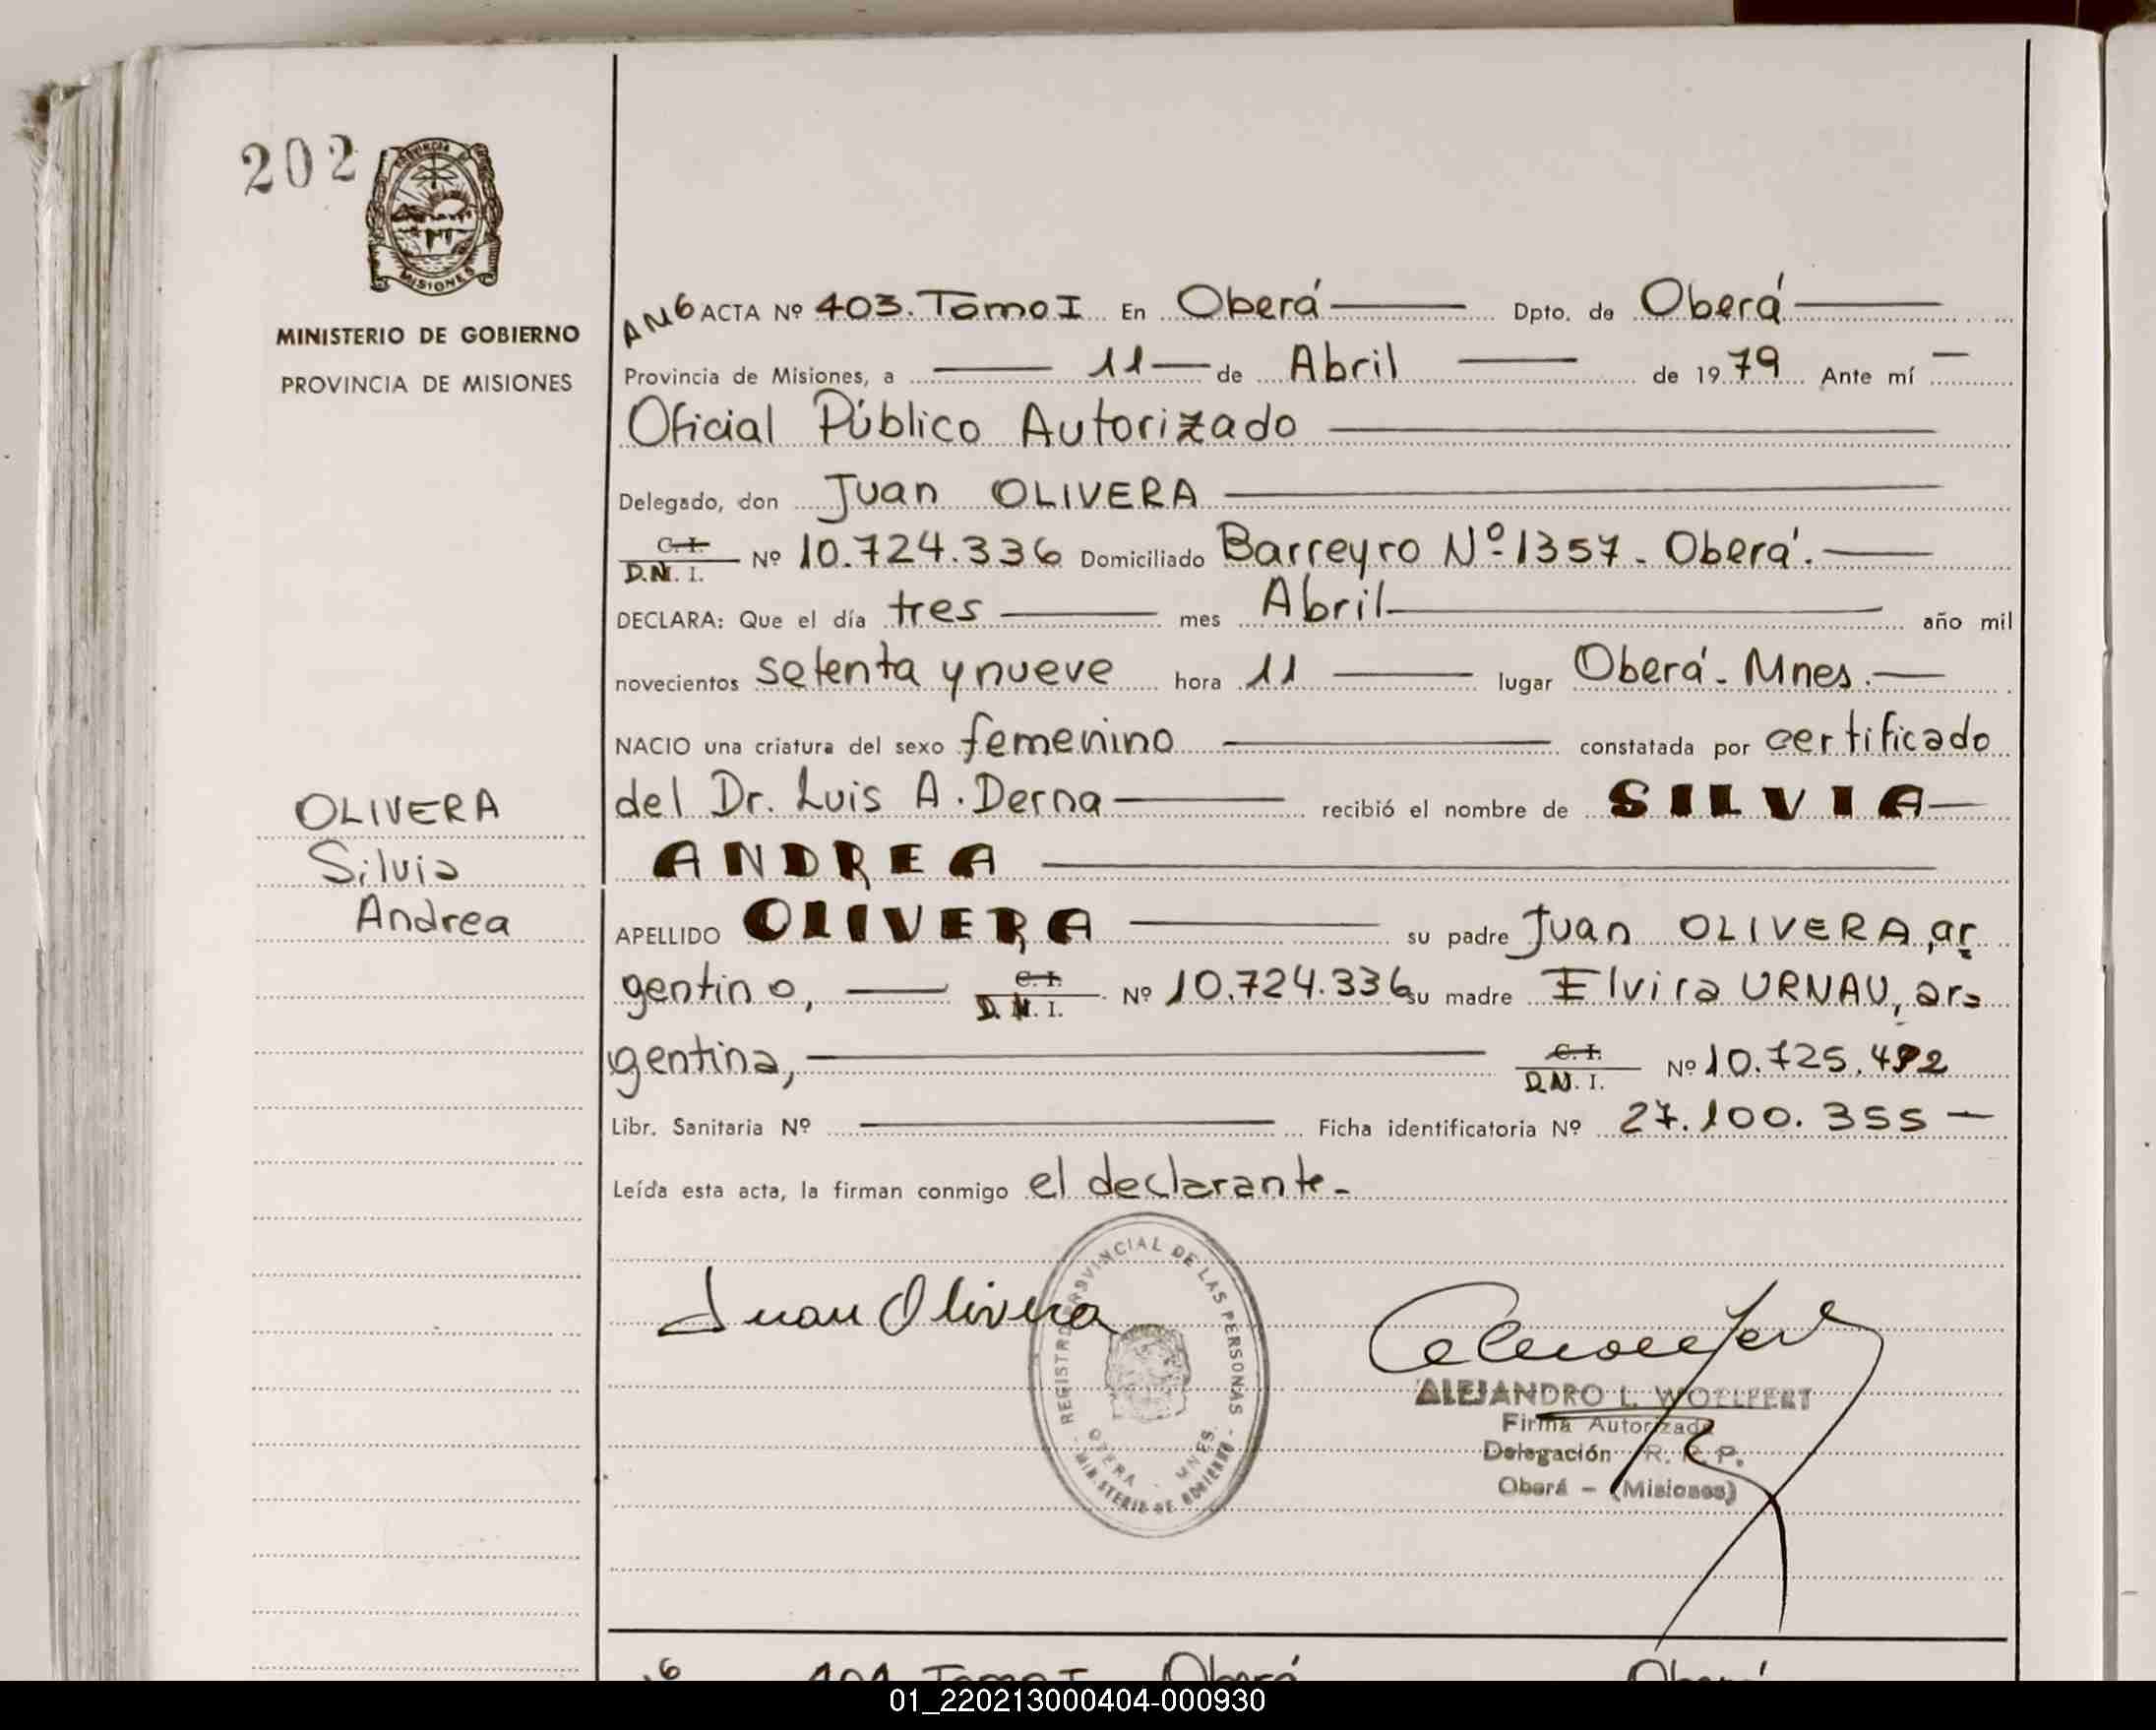 202
PROVINCIA DE
MISIONES
MINISTERIO DE GOBIERNO
PROVINCIA DE MISIONES
OLIVERA
Silvia
Andrea
AN6 ACTA Nº 403. Tomo I En Oberá Dpto. de Oberá
Provincia de Misiones, a 11 de Abril de 1979 Ante mí
Oficial Público Autorizado
Delegado, don Juan OLIVERA
C. I.
D.N. I. Nº 10.724.336 Domiciliado Barreyro Nº 1357 - Oberá.
DECLARA: Que el día tres mes Abril año mil
novecientos setenta y nueve hora 11 lugar Oberá - Mnes.
NACIO una criatura del sexo femenino constatada por certificado
del Dr. Luis A. Derna recibió el nombre de SILVIA
ANDREA
APELLIDO OLIVERA su padre Juan OLIVERA, ar
gentino, C. I.
D. N. I. Nº 10.724.336 su madre Elvira URNAU, ar=
gentina, C. I.
D.N. I. Nº 10.725.492
Libr. Sanitaria Nº Ficha identificatoria Nº 27.100.355
Leída esta acta, la firman conmigo el declarante-
Juan Olivera
REGISTRO PROVINCIAL DE LAS PERSONAS
OBERA - MNES.
- MINISTERIO DE GOBIERNO -
ALEJANDRO L. WOELFERT
Firma Autorizada
Delegación R. R. P.
Oberá - (Misiones)
404 Tomo I Oberá Oberá
01_220213000404-000930